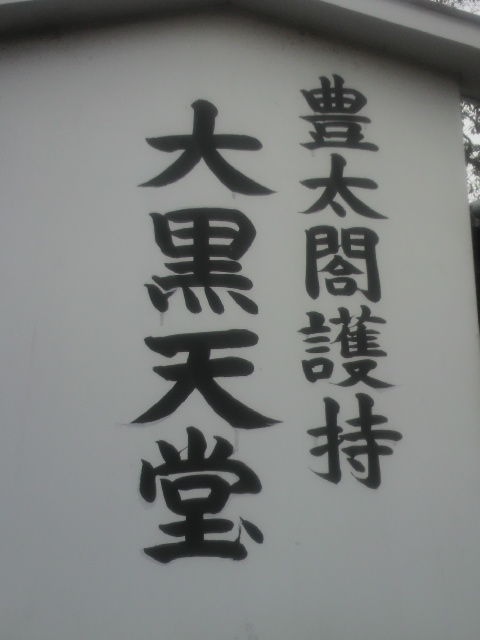 豊太閤護持
大黒天堂